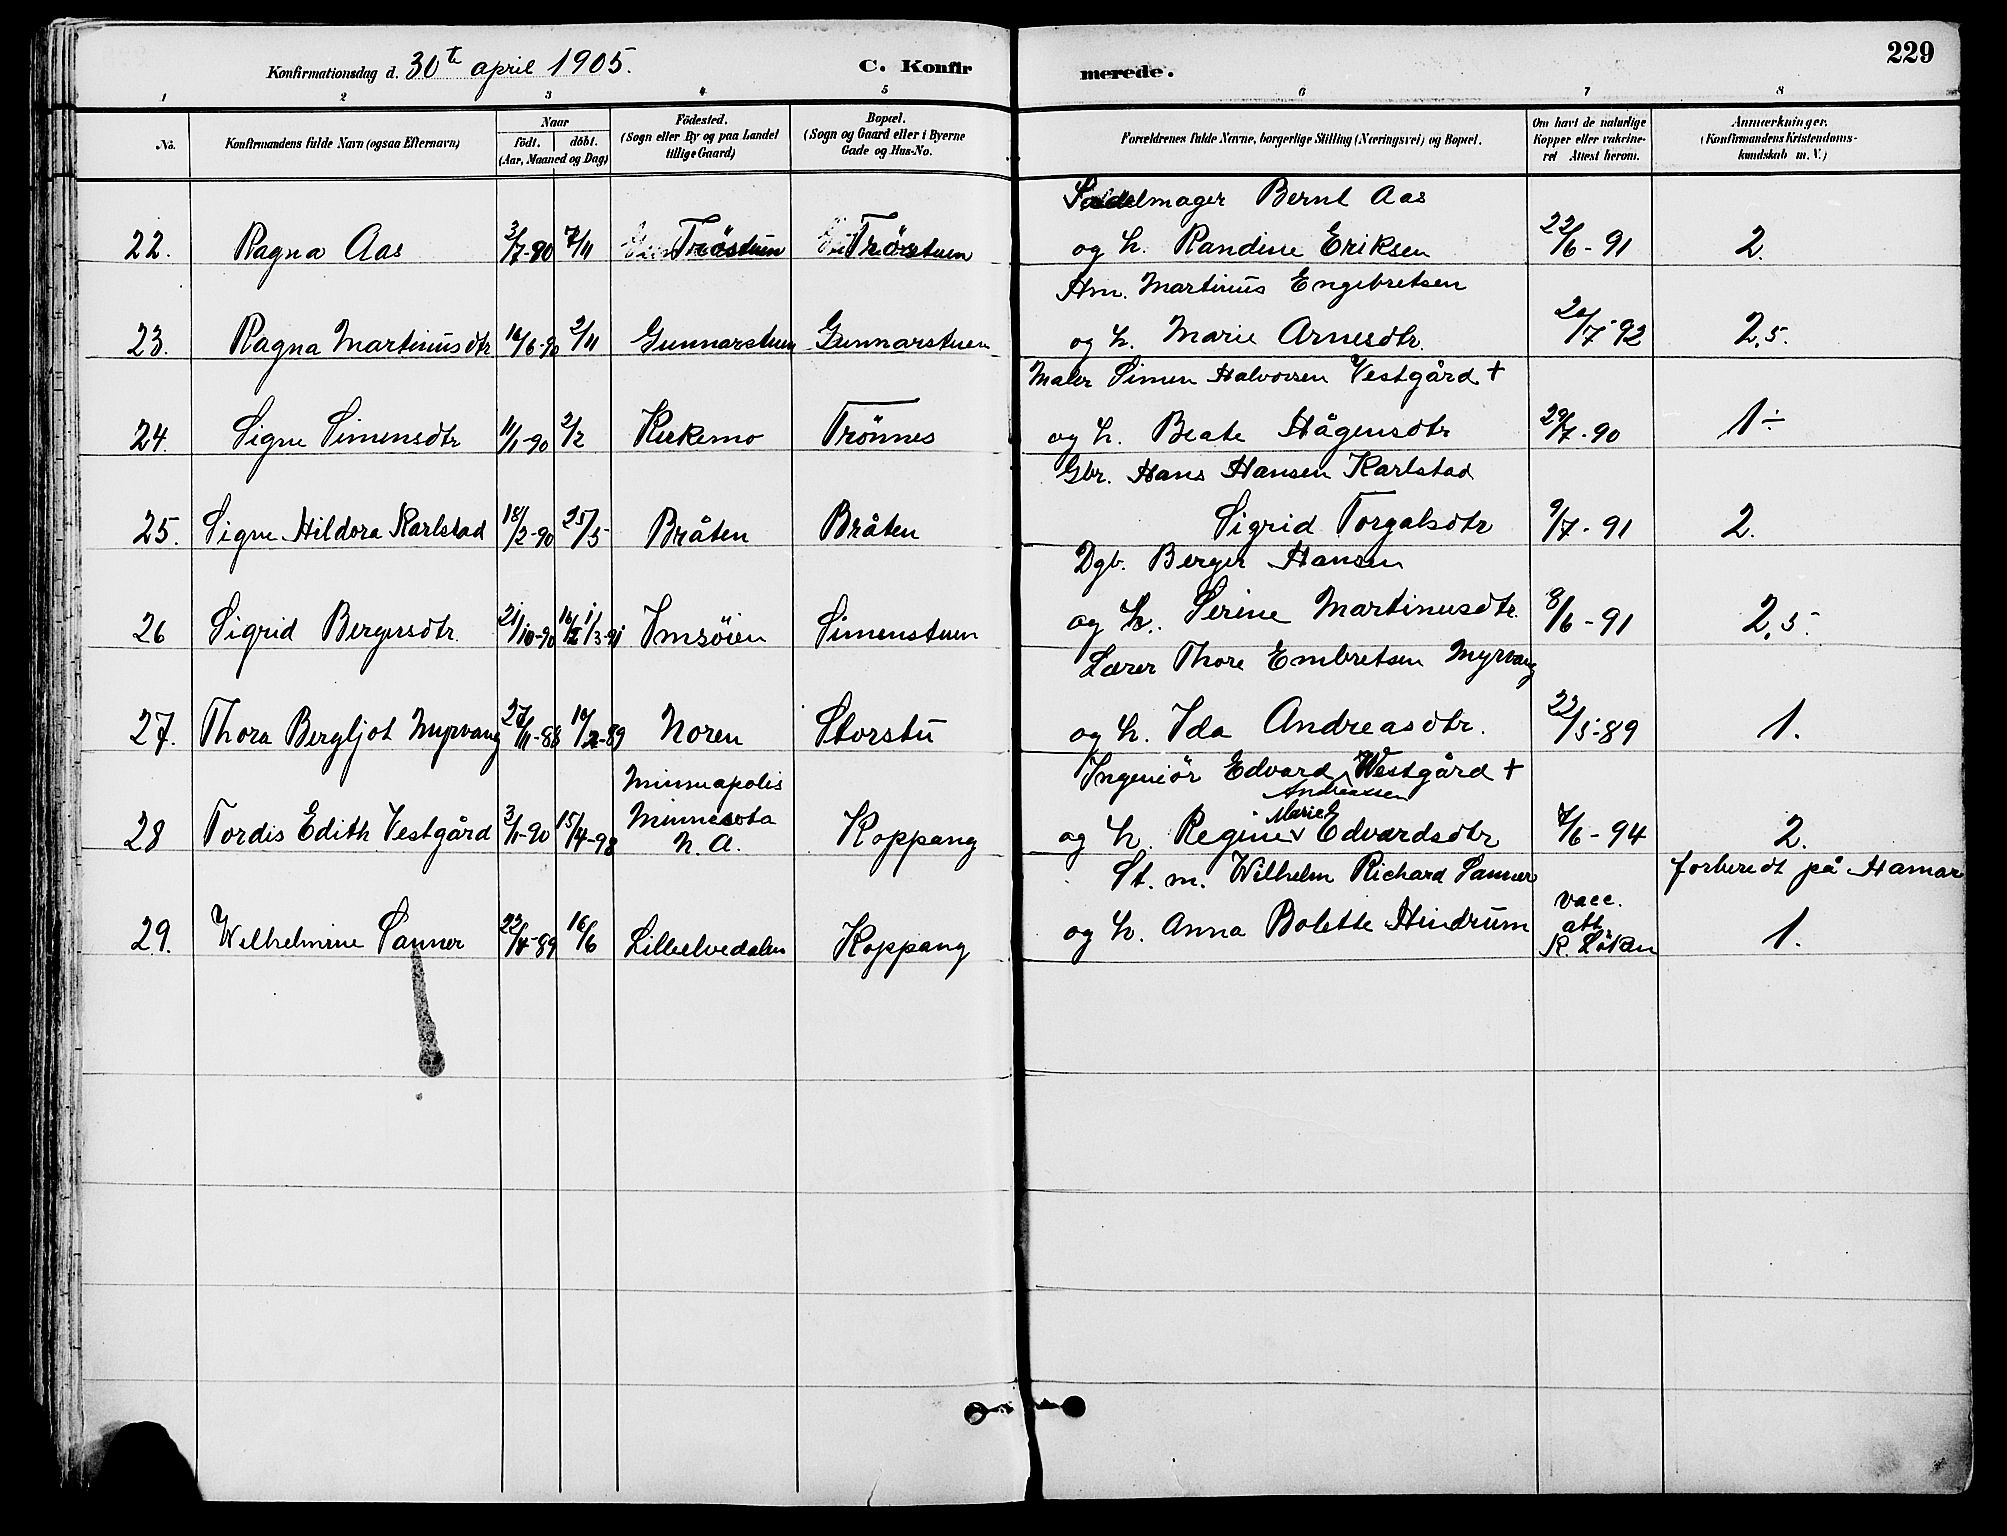 229
Konfirmationsdag d. 30te april 1905. C. Konfirmerede.
1 2 3 4 5 6 7 8
No. Konfirmandens fulde Navn (ogsaa Efternavn) Naar födt. döbt. (Aar, Maaned og Dag) Födested. (Sogn eller By og paa Landet tillige Gaard) Bopæl. (Sogn og Gaard eller i Byerne Gade og Hus-No. Forældrenes fulde Navne, borgerlige Stilling (Næringsvei) og Bopæl. Om havt de naturlige Kopper eller vakcineret Attest herom. Anmærkninger. (Konfirmandens Kristendomskundskab m. V.)
Sadelmager Bernt Aas
22. Ragna Aas 3/7-90 7/11 Tröstuen Trörstuen og h. Randine Eriksen 22/6-91 2.
Hm. Martinius Engebretsen
23. Ragna Martiniusdtr 16/6-90 2/11 Gunnarstuen Gunnarstuen og h. Marie Arnesdtr. 20/7-92 2,5.
Maler Simen Halvorsen Vestgård +
24. Signe Simensdtr 11/1-90 2/2 Kirkemo Trönnes og h. Beate Hågensdtr 29/7-90 1÷
Gbr. Hans Hansen Karlstad
25. Signe Hildora Karlstad 18/2-90 25/5 Bråten Bråten Sigrid Torgalsdtr 9/7-91 2.
Dgb. Berger Hansen
26 Sigrid Bergersdtr. 21/10-90 1/3-91 Imsöien Simenstuen og h. Serine Martinusdtr. 8/6-91 2,5.
Lærer Thore Embretsen Myrvang
27. Thora Bergljot Myrvang 27/11-88 10/2-89 Noren Storstu og h. Ida Andreasdtr. 22/5-89 1.
Minneapolis Ingeniör Edvard Andreassen Westgård +
28 Tordis Edith Vestgård 3/11-90 15/4-98 Minnesota N. A. Koppang og h. Regine Marie Edvardsdtr 7/6-94 2.
St. m. Wilhelm Richard Sanner forberedt på Hamar
29. Wilhelmine Sanner 22/4-89 16/6 Lilleelvedalen Koppang og h. Anna Bolette Hindrum vacc. att. K. Löken 1.